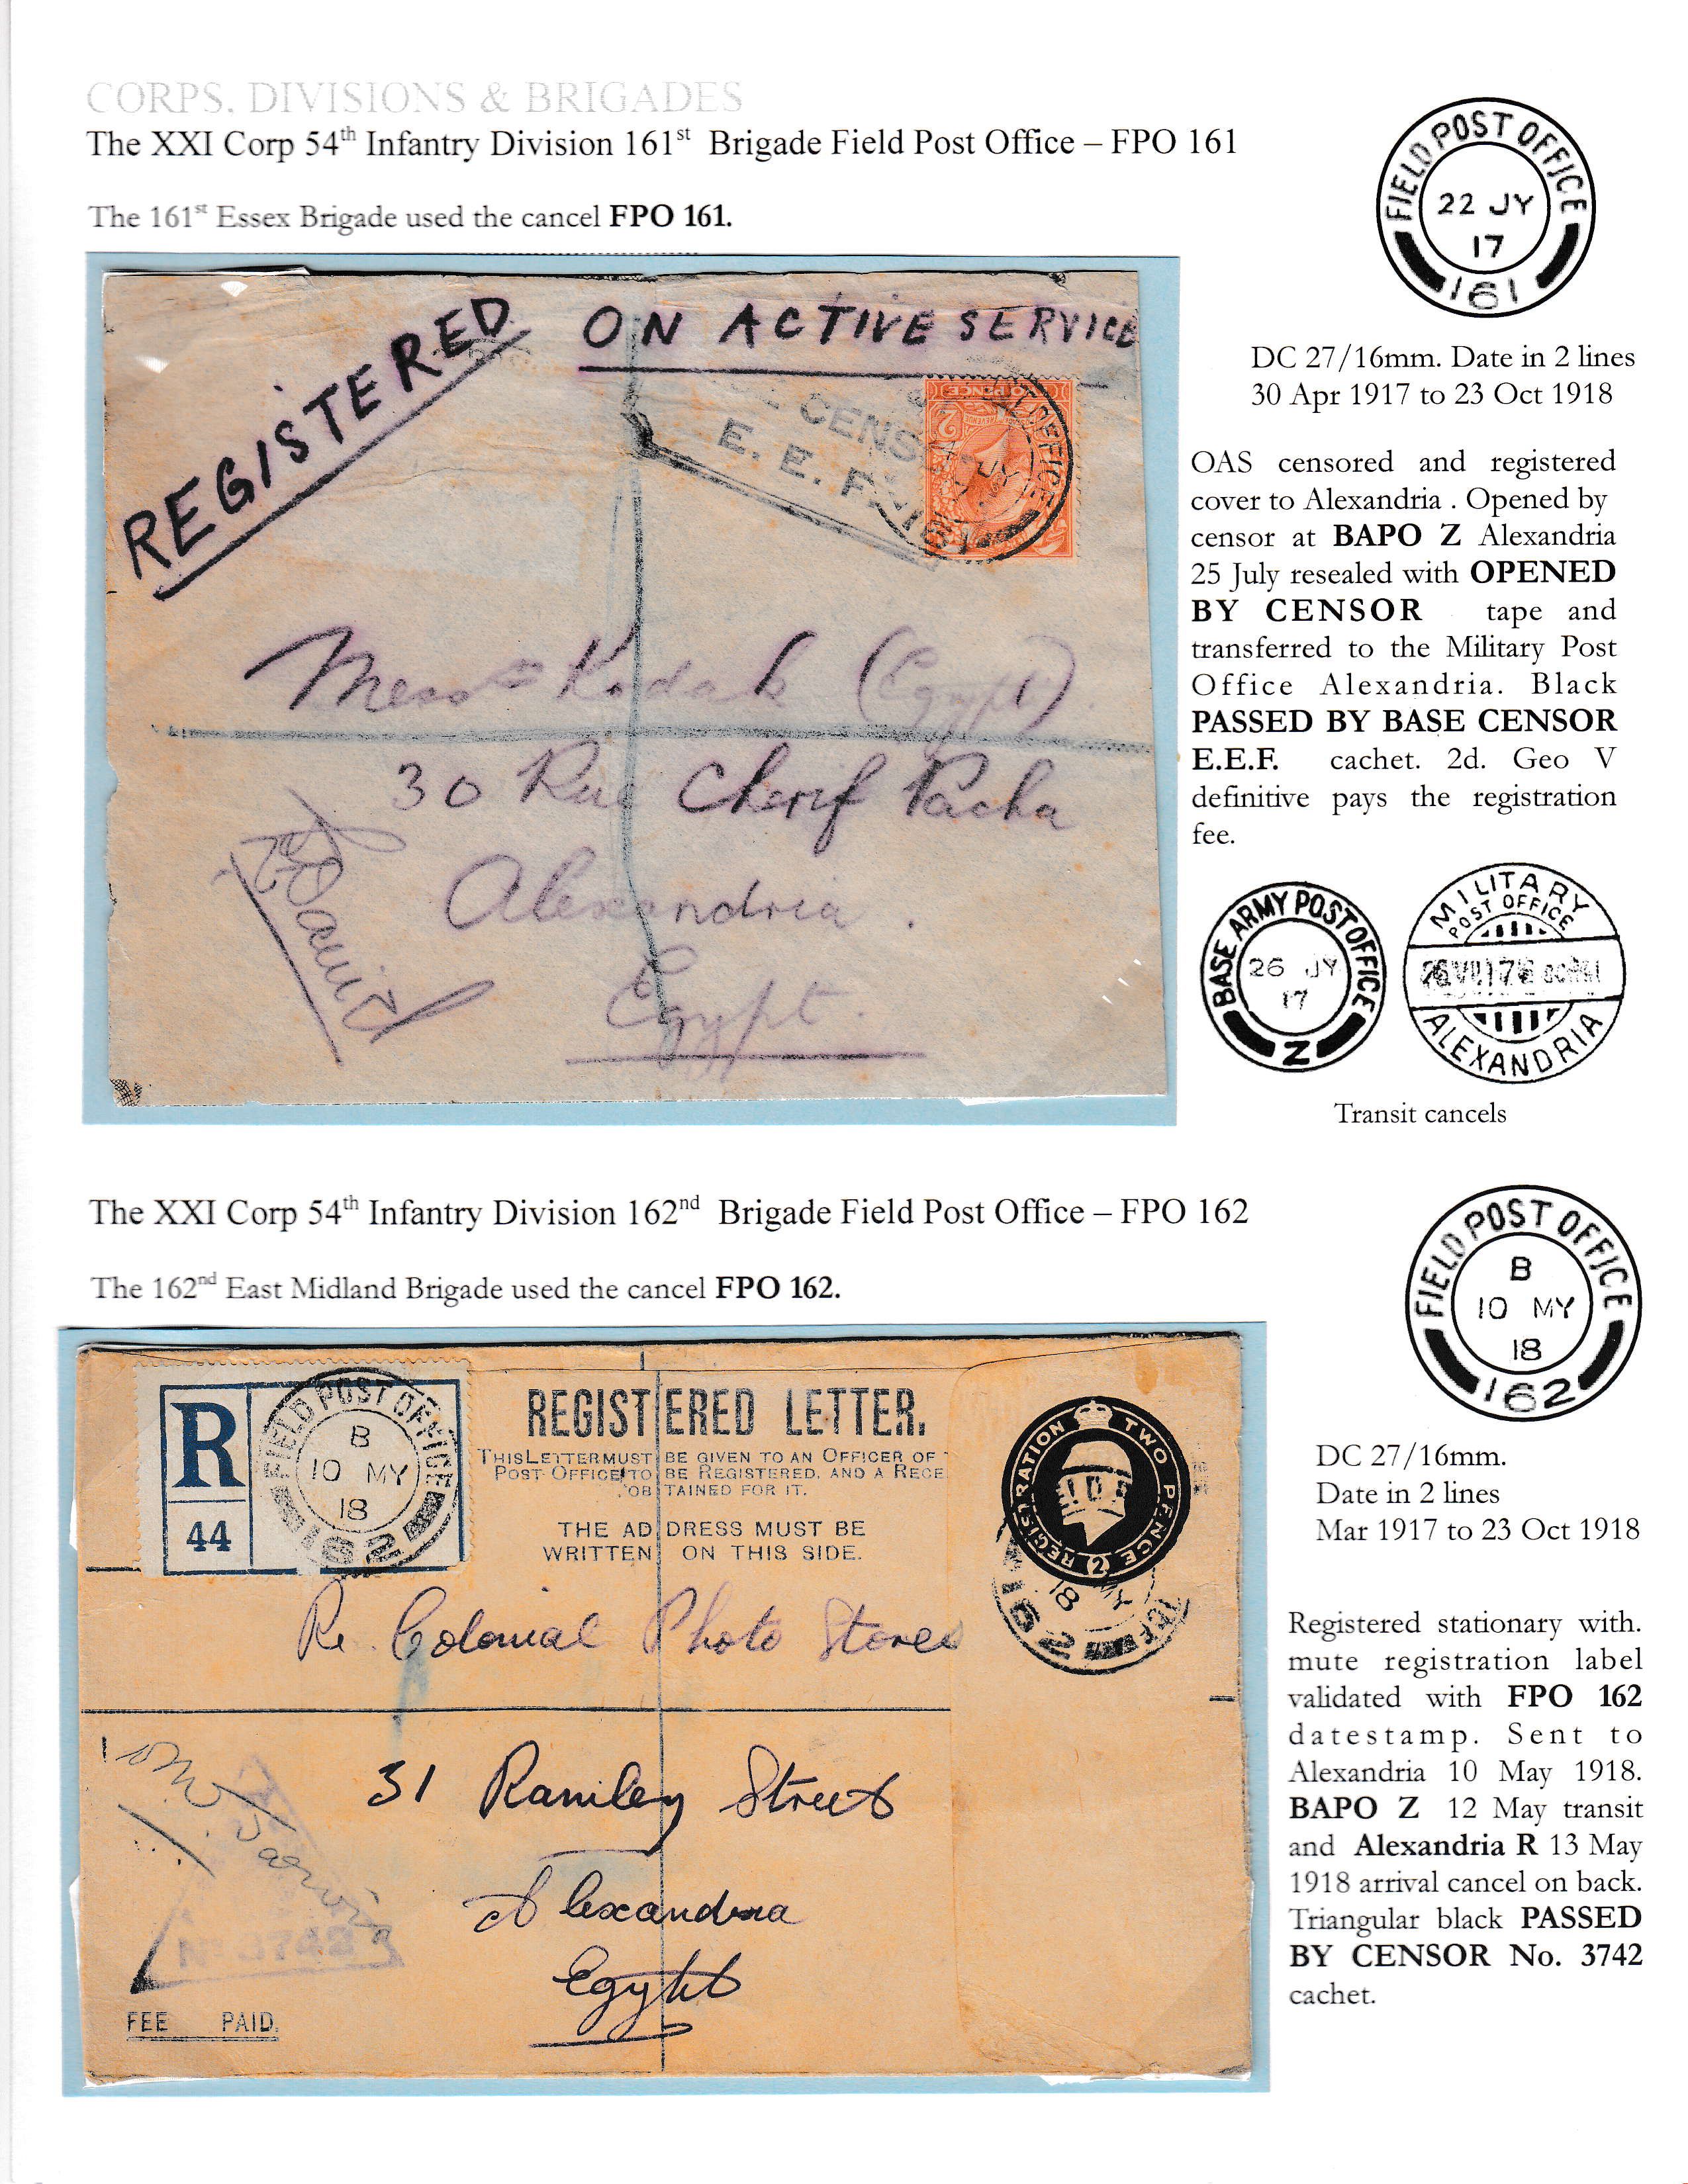 CORPS, DIVISIONS & BRIGADES
The XXI Corp 54th Infantry Division 161st Brigade Field Post Office – FPO 161
The 161st Essex Brigade used the cancel FPO 161.
FIELD POST OFFICE
22 JY
17
161
DC 27/16mm. Date in 2 lines
30 Apr 1917 to 23 Oct 1918
REGISTERED
ON ACTIVE SERVICE
CENS
E. E. F.
Messrs Kodak (Egypt).
30 Rue Cherif Pacha
Alexandria.
Egypt.
OAS censored and registered
cover to Alexandria . Opened by
censor at BAPO Z Alexandria
25 July resealed with OPENED
BY CENSOR tape and
transferred to the Military Post
Office Alexandria. Black
PASSED BY BASE CENSOR
E.E.F. cachet. 2d. Geo V
definitive pays the registration
fee.
BASE ARMY POST OFFICE
26 JY
17
Z
MILITARY
POST OFFICE
ALEXANDRIA
Transit cancels
The XXI Corp 54th Infantry Division 162nd Brigade Field Post Office – FPO 162
The 162nd East Midland Brigade used the cancel FPO 162.
FIELD POST OFFICE
B
10 MY
18
162
DC 27/16mm.
Date in 2 lines
Mar 1917 to 23 Oct 1918
R
44
FIELD POST OFFICE
B
10 MY
18
162
REGISTERED LETTER.
THIS LETTER MUST BE GIVEN TO AN OFFICER OF
POST OFFICE TO BE REGISTERED, AND A RECE
OBTAINED FOR IT.
THE ADDRESS MUST BE
WRITTEN ON THIS SIDE.
REGISTRATION TWO PENCE (2)
MY
18
162
Re. Colonial Photo Stores
31 Ramley Street
Alexandria
Egypt
No 3742
FEE PAID.
Registered stationary with.
mute registration label
validated with FPO 162
datestamp. Sent to
Alexandria 10 May 1918.
BAPO Z 12 May transit
and Alexandria R 13 May
1918 arrival cancel on back.
Triangular black PASSED
BY CENSOR No. 3742
cachet.